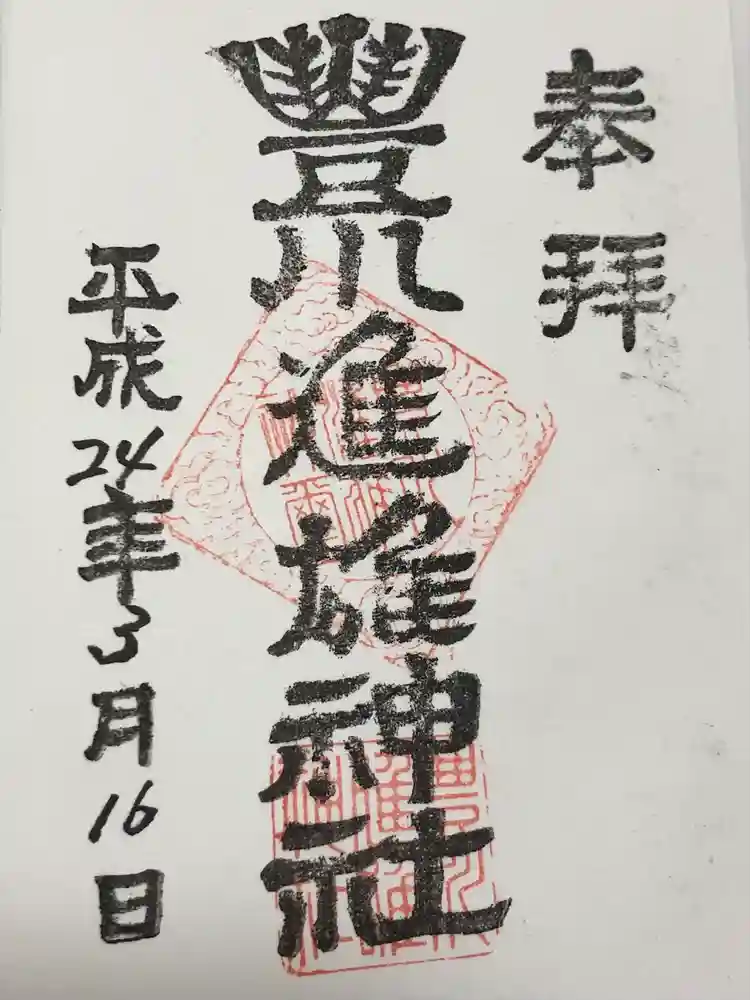 奉拝
豊川進雄神社
平成24年3月16日